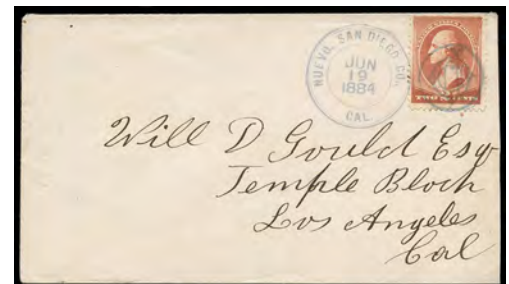 NUEVO, SAN DIEGO CO.
JUN
19
1884
CAL.
TWO CENTS
Will D Gould Esq
Temple Block
Los Angeles
Cal